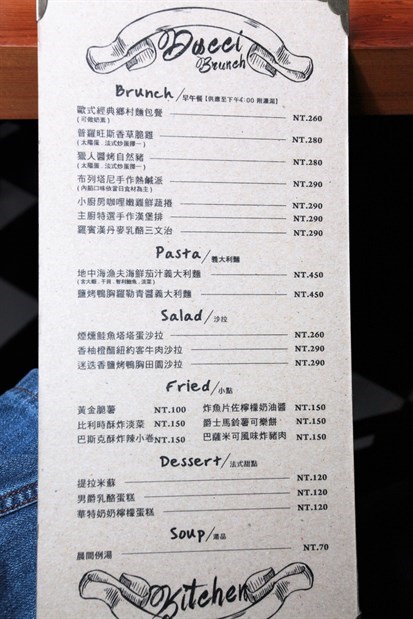 Ducci
Brunch
Brunch/早午餐【供應至下午4:00 附濃湯】
歐式經典鄉村麵包餐 NT.260
(可做奶素)
普羅旺斯香草脆雞 NT.280
(太陽蛋.法式炒蛋擇一)
獵人醬烤自然豬 NT.280
(太陽蛋.法式炒蛋擇一)
布列塔尼手作熱鹹派 NT.290
(內餡口味依當日食材為主)
小廚房咖哩嫩雞鮮蔬捲 NT.290
主廚特選手作漢堡排 NT.290
羅賓漢丹麥乳酪三文治 NT.290
Pasta/義大利麵
地中海漁夫海鮮茄汁義大利麵 NT.450
鹽烤鴨胸羅勒青醬義大利麵 NT.450
Salad/沙拉
煙燻鮭魚塔塔蛋沙拉 NT.260
香柚橙醋紐約客牛肉沙拉 NT.290
迷迭香鹽烤鴨胸田園沙拉 NT.290
Fried/小點
黃金脆薯 NT.100 炸魚片佐檸檬奶油醬 NT.150
比利時酥炸淡菜 NT.150 爵士馬鈴薯可樂餅 NT.150
巴斯克酥炸辣小卷 NT.150 巴薩米可風味炸豬肉 NT.150
Dessert/法式甜點
提拉米蘇 NT.120
男爵乳酪蛋糕 NT.120
華特奶奶檸檬蛋糕 NT.120
Soup/湯品
晨間例湯 NT.70
Kitchen